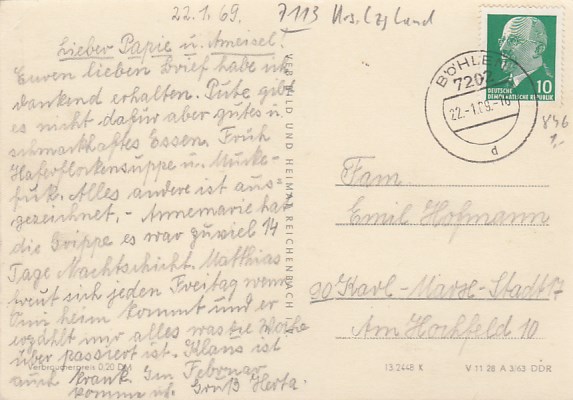 22.1.69.
Lieber Papie u. Ameisel!
Euren lieben Brief habe ich
dankend erhalten. Pute gibt
es nicht dafür aber gutes u.
schmackhaftes Essen. Früh
Haferflockensuppe u. Mucke-
fuk. Alles andere ist aus-
gezeichnet, - Annemarie hat
die Grippe es war zuviel 14
Tage Nachtschicht. Matthias
freut sich jeden Freitag wenn
Omi heim kommt und er
erzählt mir alles was die Woche
über passiert ist. Klaus ist
auch krank. Im Februar
komme ich. Gruß Herta.
Verbraucherpreis 0,20 DM
VERLAG BILD UND HEIMAT REICHENBACH I. V.
7113
BÖHLEN
7202
22.-1.69.-18
d
DEUTSCHE
DEMOKRATISCHE REPUBLIK
10
846
1,-
Fam.
Emil Hofmann
90 Karl-Marx-Stadt 17
Am Hochfeld 10
13 2448 K
V 11 28 A 3/63 DDR